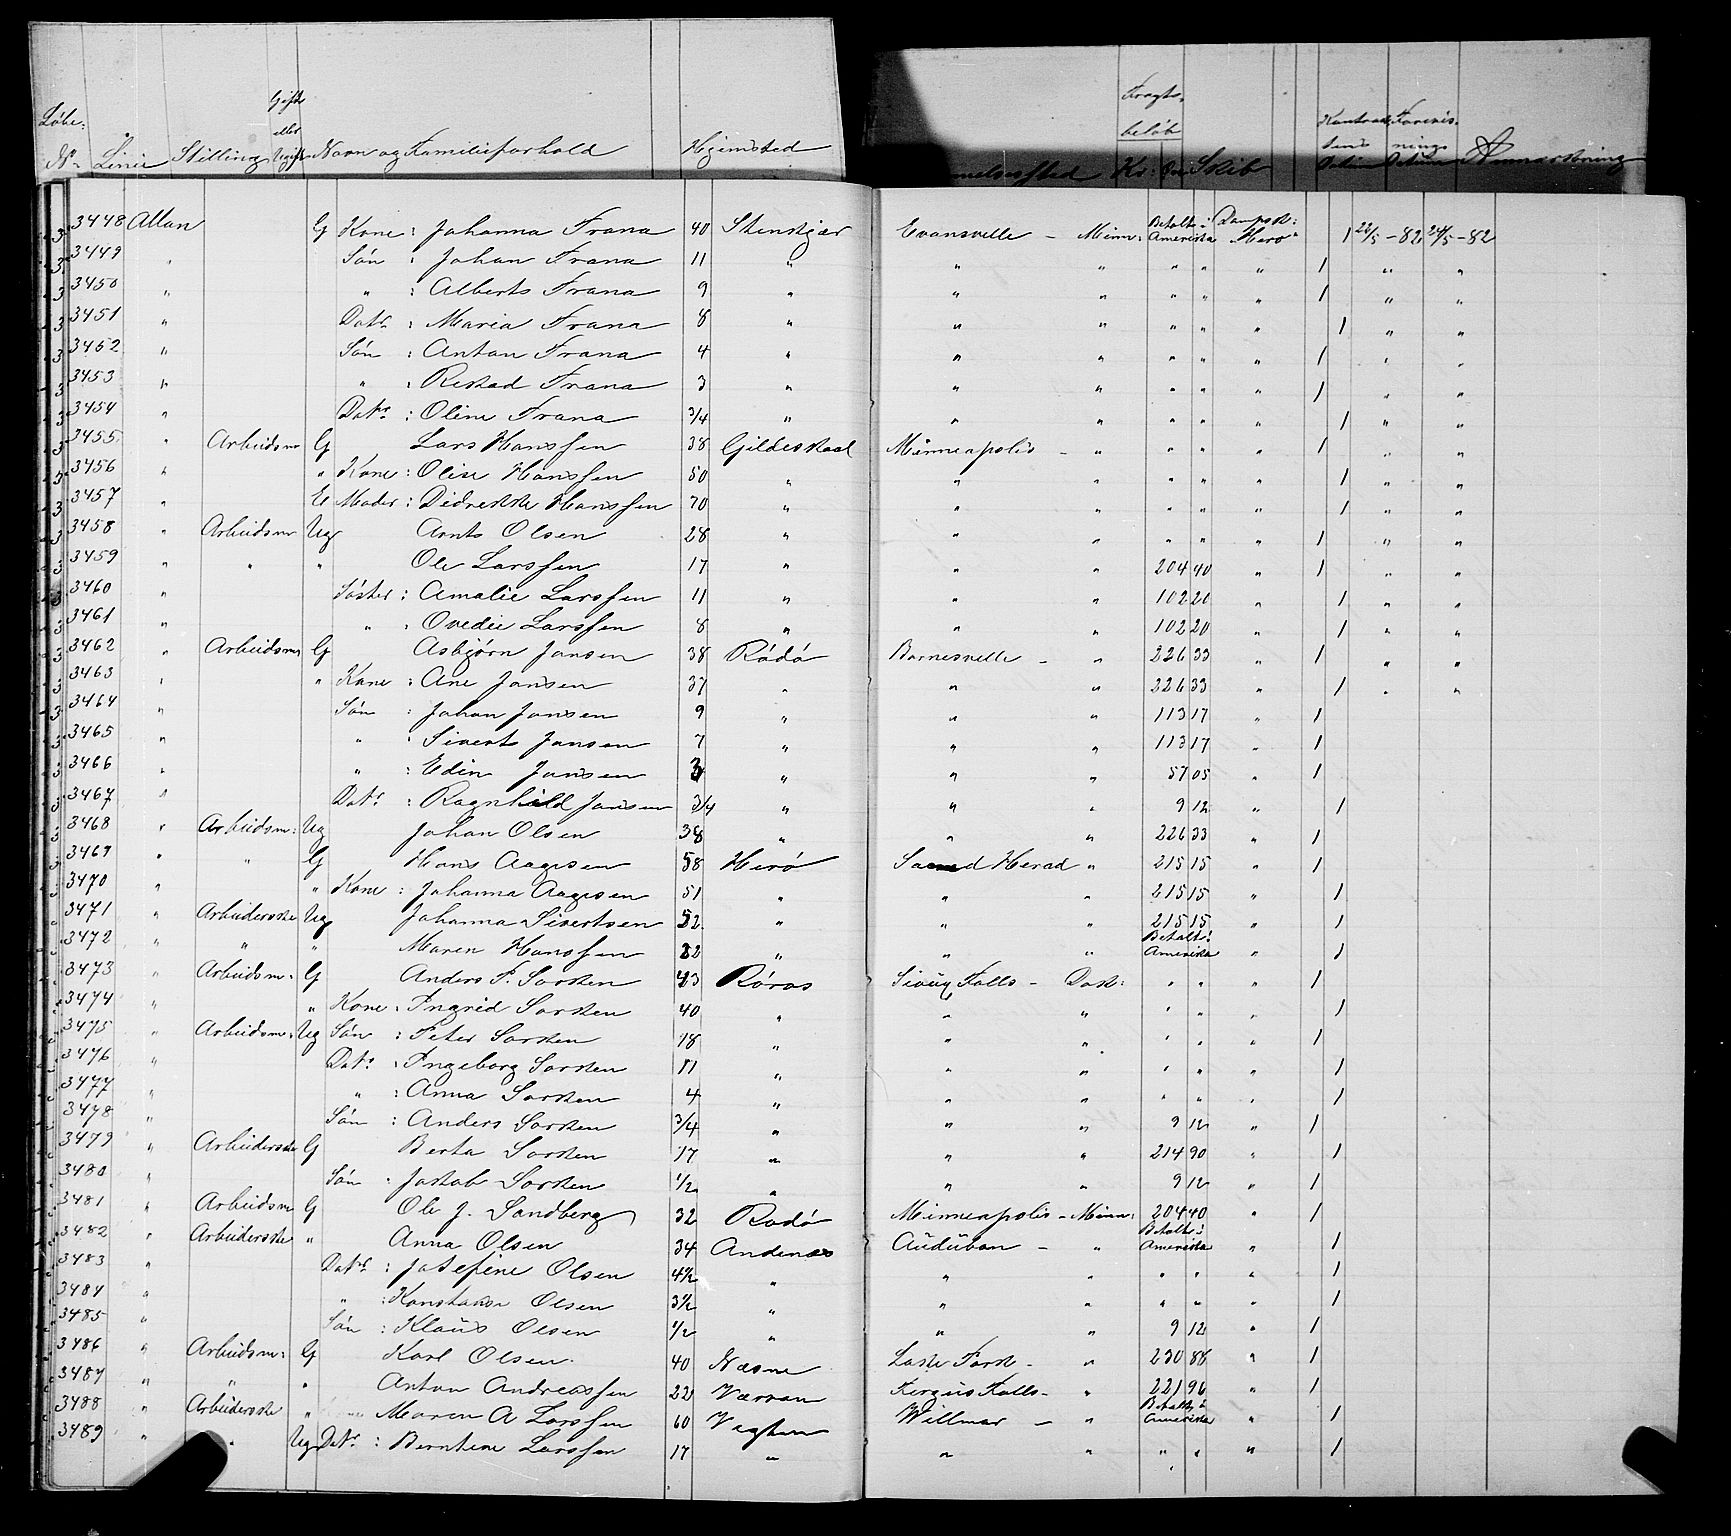 Løbe: Gift Fragts- Kontrak- Forevis-
eller beløb tens nings
No Linie Stilling Ugift Navn og Familieforhold Hjemsted melsessted Kr: Øre Skib Datum Datum Anmærkning
3448 Allan G Kone: Johanna Frana 40 Stenskjær Evansville - Minn: Betalt i Amerika Dampsk: Hero 1 22/5 - 82 24/5 - 82
3449 " Søn : Johan Frana 11 " " " " " " 1 " "
3450 " " : Alberts Frana 9 " " " " " " 1 " "
3451 " Datr : Maria Frana 8 " " " " " " 1 " "
3452 " Søn : Anton Frana 4 " " " " " " 1 " "
3453 " " : Restad Frana 3 " " " " " " 1 " "
3454 " Datr : Oline Frana 3/4 " " " " " " 1 " "
3455 " Arbeidsm G Lars Hanssen 38 Gildeskaal Minneapolis - " " " " 1 " "
3456 " " Kone : Oline Hanssen 50 " " " " " " 1 " "
3457 " E Moder : Didrekke Hanssen 70 " " " " " " 1 " "
3458 " Arbeidsm Ug Arnts Olsen 28 " " " " " " 1 " "
3459 " " " Ole Larssen 17 " " " 204 40 " 1 " "
3460 " Søster : Amalie Larssen 11 " " " 102 20 " 1 " "
3461 " " : Ovedie Larssen 8 " " " 102 20 " 1 " "
3462 " Arbeidsm G Asbjørn Jansen 38 Rødø Barnesville - " 226 33 " 1 " "
3463 " " Kone : Ane Jansen 37 " " " 226 33 " 1 " "
3464 " Søn : Johan Jansen 9 " " " 113 17 " 1
3465 " " : Siverts Jansen 7 " " " 113 17 " 1
3466 " " : Edin Jansen 3 " " " 57 05 " 1
3467 " Datr : Ragnhild Jansen 3/4 " " " 9 12 " 1
3468 " Arbeidsm: Ug Johan Olsen 38 " " " 226 33 " 1
3469 " " G Hans Aagesen 58 Herø Sacred Herad " 215 15 " 1
3470 " " Kone : Johanna Aagesen 51 " " " 215 15 " 1
3471 " Arbeiderske Ug Johanna Sivertsen 52 " " " 215 15 " 1
3472 " " " Maren Hanssen 22 " " " Betalt i Amerika " 1
3473 " Arbeidsm: G Anders P. Sorken 43 Røros Sioux Falls - Dak: " " " 1
3474 " " Kone : Ingrid Sorken 40 " " " " " " 1
3475 " Arbeidsm: Ug Søn : Peter Sorken 18 " " " " " " 1
3476 " Datr : Ingeborg Sorken 11 " " " " " " 1
3477 " " : Anna Sorken 4 " " " " " " 1
3478 " Søn : Anders Sorken 3/4 " " " 9 12 " 1
3479 " Arbeiderske G Berta Sorken 17 " " " 214 90 " 1
3480 " Søn : Jakob Sorken 1/2 " " " 9 12 1
3481 " Arbeidsm G Ole J. Sandberg 32 Rødø Minneapolis - Minn: 204 40 " 1
3482 " Arbeiderske " Anna Olsen 34 Andenæs Audubon - " Betalt i Amerika " 1
3483 " Datr : Josefine Olsen 4 1/2 " " " " " " 1
3484 " " : Konstanse Olsen 3 1/2 " " " " " " 1
3485 " Søn : Klaus Olsen 1/2 " " " 9 12 " 1
3486 " Arbeidsm: G Karl Olsen 40 Næsne Lake Park - " 230 88 " 1
3487 " " " Anton Andreassen 22 Værran Fergus Falls - " 221 96 " 1
3488 " Arbeiderske " Maren A Larssen 60 Vegten Willmar - " Betalt i Amerika " 1
3489 " " Ug Datr : Berntine Larssen 17 " " " " " " 1